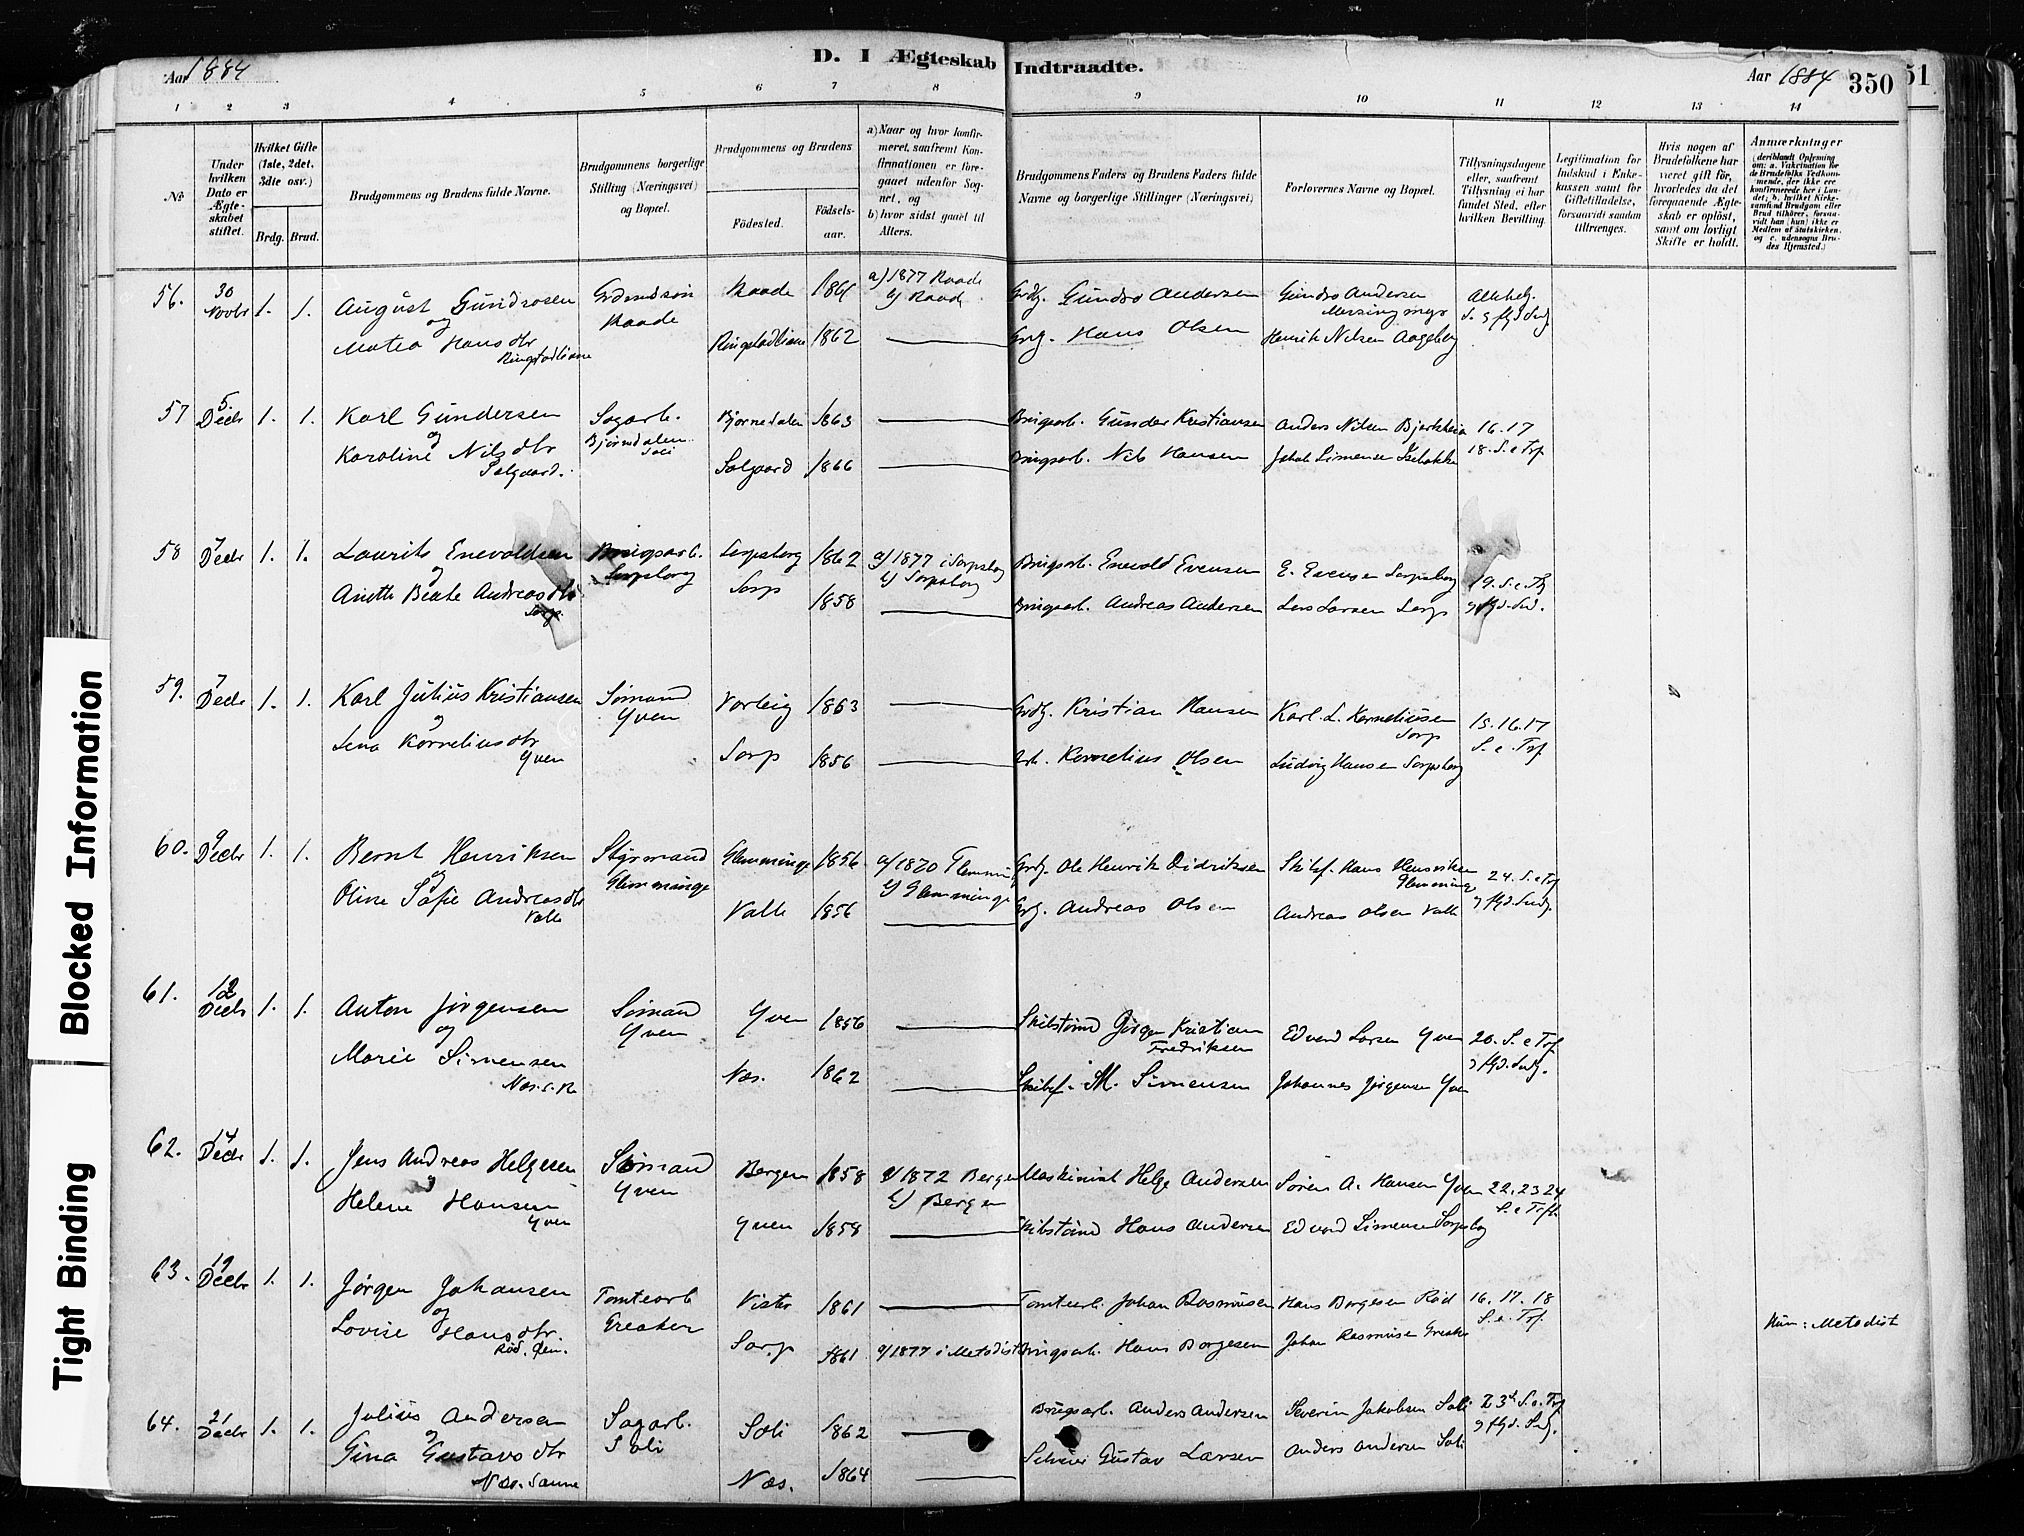 Aar 1884
D. I Ægteskab Indtraadte.
Aar 1884 350
51
1 2 3 4 5 6 7 8 9 10 11 12 13 14
№
Under hvilken Dato er Ægteskabet stiftet.
Hvilket Gifte (1ste, 2det, 3die osv.)
Brdg. Brud.
Brudgommens og Brudens fulde Navne.
Brudgommens borgerlige Stilling (Næringsvei) og Bopæl.
Brudgommens og Brudens
Fødested.
Fødselsaar.
a) Naar og hvor konfirmeret, saafremt Konfirmationen er foregaaet udenfor Sognet, og
b) hvor sidst gaaet til Alters.
Brudgommens Faders og Brudens Faders fulde Navne og borgerlige Stillinger (Næringsvei)
Forlovernes Navne og Bopæl.
Tillysningsdagene eller, saafremt Tillysning ei har fundet Sted, efter hvilken Bevilling.
Legitimation for Indskud i Enkekassen samt for Giftetilladelse, forsaavidt saadan tiltrænges.
Hvis nogen af Brudefolkene har været gift før, hvorledes da det foregaaende Ægteskab er opløst, samt om lovligt Skifte er holdt.
Anmærkninger
(deriblandt Oplysning om: a. Vakcination for de Brudefolks Vedkommende, der ikke ere konfirmerede her i Landet; b. hvilket Kirkesamfund Brudgom eller Brud tilhører, forsaavidt han (hun) ikke er Medlem af Statskirken, og c. udensogns Brudes Hjemsted.)
56. 30 Novbr 1. 1. August Gundrosen Raade 1861 a) 1877 Raade Grdb. Gundro Andersen Gundro Andersen
og Raade b) Raade
Matea Hansdtr Ringstadliane 1862 Grdb. Hans Olsen Henrik Nilsen Aageby
Ringstadliane
57 5. Decbr 1. 1. Karl Gundersen Sagarb. Bjørnedalen 1863 Brugsarb. Gunder Kristiansen Anders Nilsen 16. 17
og Bjørndalen Soli 18. S. e Trf
Karoline Nilsdtr Solgaard 1866 Brugsarb. Nils Hansen Jakob Simensen
Solgaard.
58 7 Decbr 1. 1. Laurits Enevoldsen Brugsarb. Sarpsborg 1862 a) 1877 i Sarpsborg Brugsarb. Enevold Evensen E. Evensen Sarpsborg 19. S. e Trf
og Sarpsborg b) Sarpsborg
Anette Beate Andreasdtr Sarp 1858 Brugsarb. Andreas Andersen Lars Larsen Sarp
Sarp
59. 7 Decbr 1. 1. Karl Julius Kristiansen Sømand Varteig 1863 Grdb. Kristian Hansen Karl L. Korneliusen 15. 16. 17
og Yven Sarp S. e. Trf.
Lena Korneliusdtr Sarp 1856 Arb. Kornelius Olsen Ludvig Hansen Sarpsborg
Yven
60. 9 Decbr 1. 1. Bernt Henriksen Styrmand Glemminge 1856 a) 1870 Glemminge Grdb. Ole Henrik Didriksen Skibsf. Hans Henriksen 24. S. e Trf
og Glemminge b) Glemminge Glemminge
Oline Sofie Andreasdtr Valle 1856 Grdb. Andreas Olsen Andreas Olsen Valle
Valle
61. 12 Decbr 1. 1. Anton Jørgensen Sømand Yven 1856 Skibstømd Jørgen Kristian Edvard Larsen Yven 20. S. e Trf
og Yven Fredriksen
Marie Simensen Næs. 1862 Skibsf. M. Simensen Johannes Jørgensen Yven
62. 14 Decbr 1. 1. Jens Andreas Helgesen Sømand Bergen 1858 a) 1872 Bergen Maskinist Helge Andersen Søren A. Hansen Yven 22. 23 24
og Yven b) Bergen S. e Trf.
Helene Hansen Yven 1858 Skibstømd Hans Andersen Edvard Simensen Sarpsborg
Yven
63. 19 Decbr 1. 1. Jørgen Johansen Tomtearb Vister 1861 Tomtearb. Johan Rasmusen Hans Borgesen Rød 16. 17. 18
og Greaker S. e. Trf.
Lovise Hansdtr. Sarp 1861 a) 1877 i Metodist Brugsarb. Hans Borgesen Johan Rasmusen Greaker Hun: Metodist
64. 21 Decbr 1. 1. Julius Andersen Sagarb. Soli 1862 Brugsarb. Anders Andersen Severin Jakobsen Soli 23de S. e. Trf
og Soli
Gina Gustavsdtr Næs. 1864 Gustav Larsen Anders Andersen Soli
Næs. Sanne
Blocked Information
Tight Binding